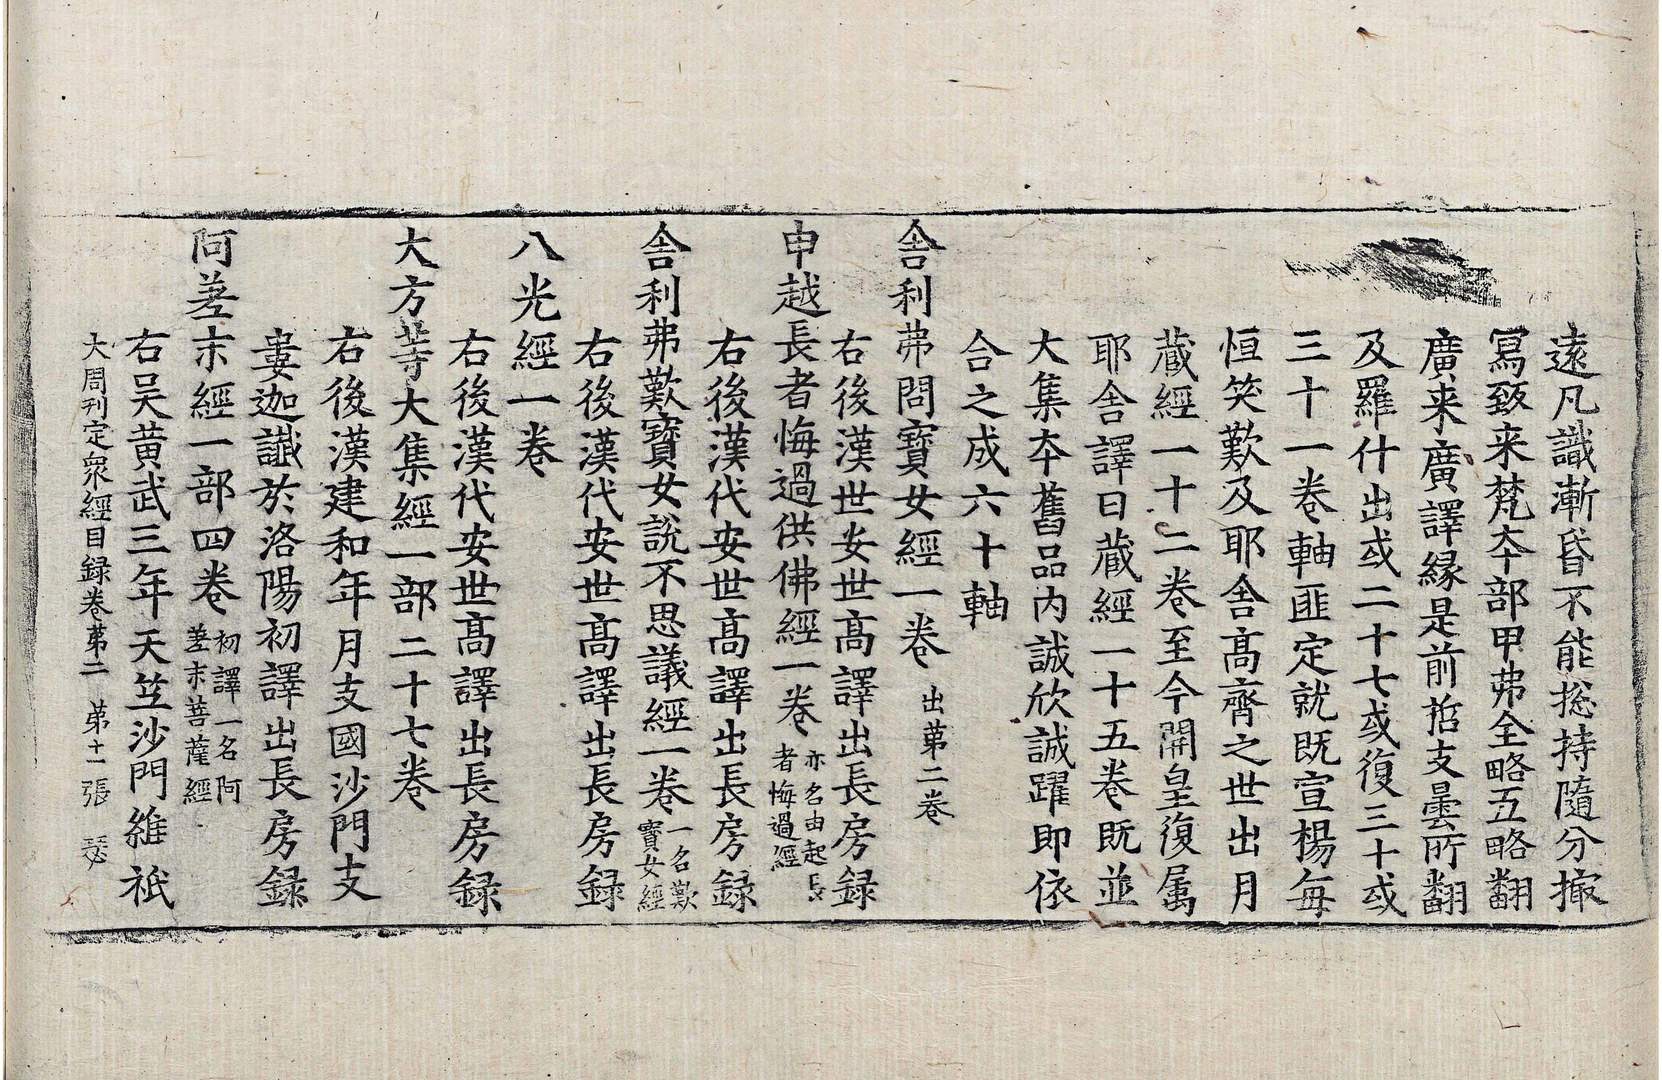 遠凡識漸昏不能捴持隨分撮
寫致来梵夲部甲弗全略五略翻
廣来廣譯緣是前哲支曇所翻
及羅什出或二十七或復三十或
三十一卷軸匪定就既宣楊每
恒笑歎及耶舍高齊之世出月
藏經一十二卷至今開皇復属
耶舍譯日藏經一十五卷既並
大集夲舊品内誠欣誠躍即依
合之成六十軸
舍利弗問寶女經一卷 出苐二卷
右後漢世安世髙譯出長房録
申越長者悔過供佛經一卷 亦名由起長者悔過經
右後漢代安世髙譯出長房録
舍利弗歎寶女說不思議經一卷 一名歎寶女經
右後漢代安世髙譯出長房録
八光經一卷
右後漢代安世髙譯出長房録
大方等大集經一部二十七卷
右後漢建和年月支國沙門支
婁迦讖於洛陽初譯出長房録
阿差末經一部四卷 初譯一名阿差末菩薩經
右吳黄武三年天笠沙門維祇
大周刊定衆經目録卷苐二 苐十一張 瑟